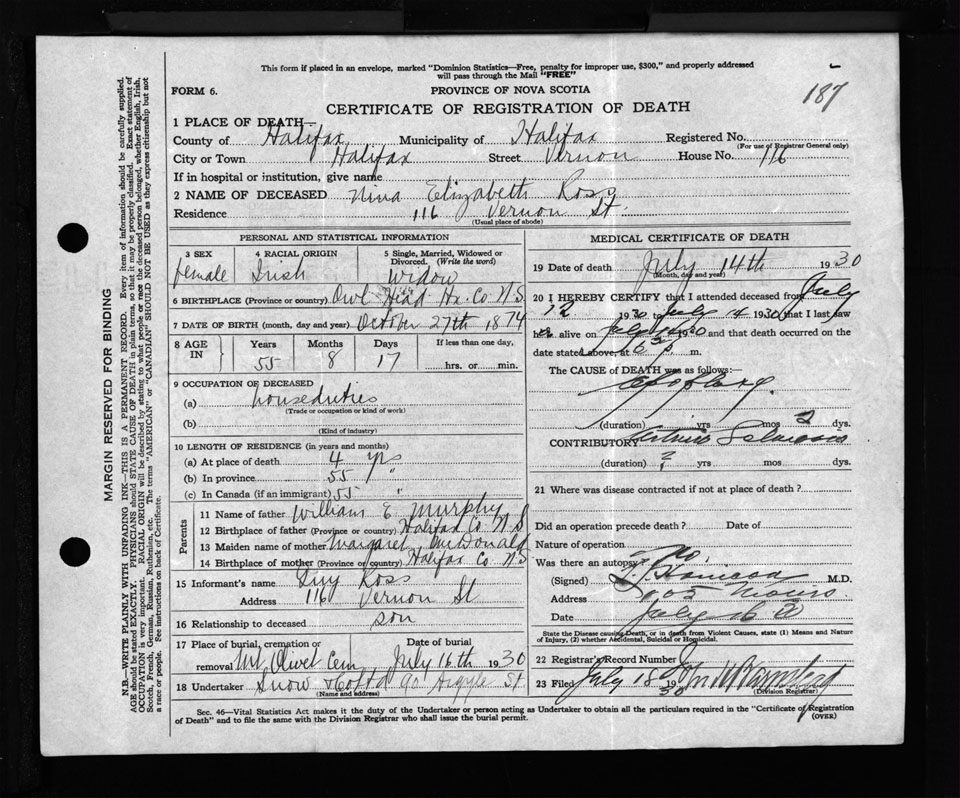 This form if placed in an envelope, marked "Dominion Statistics—Free, penalty for improper use, $300," and properly addressed
will pass through the Mail "FREE"
187
FORM 6.
PROVINCE OF NOVA SCOTIA
CERTIFICATE OF REGISTRATION OF DEATH
1 PLACE OF DEATH—
County of Halifax Municipality of Halifax Registered No.
(For use of Registrar General only)
City or Town Halifax Street Vernon House No. 116
If in hospital or institution, give name
2 NAME OF DECEASED Nina Elizabeth Ross
Residence 116 Vernon St.
(Usual place of abode)
PERSONAL AND STATISTICAL INFORMATION
3 SEX female
4 RACIAL ORIGIN Irish
5 Single, Married, Widowed or Divorced. (Write the word) widow
6 BIRTHPLACE (Province or country) Owl Head Hx. Co. N.S
7 DATE OF BIRTH (month, day and year) October 27th 1874
8 AGE IN Years Months Days If less than one day,
55 8 17 hrs. or min.
9 OCCUPATION OF DECEASED
(a) houseduties
(Trade or occupation or kind of work)
(b)
(Kind of industry)
10 LENGTH OF RESIDENCE (in years and months)
(a) At place of death 4 yrs
(b) In province 55 "
(c) In Canada (if an immigrant) 55 "
Parents
11 Name of father William E Murphy
12 Birthplace of father (Province or country) Halifax Co N.S
13 Maiden name of mother Margaret McDonald
14 Birthplace of mother (Province or country) Halifax Co NS
15 Informant's name Ross
Address 116 Vernon St
16 Relationship to deceased son
17 Place of burial, cremation or Date of burial
removal Mt Olivet Cem July 16th 1930
18 Undertaker Snow 90 Argyle St
(Name and address)
MEDICAL CERTIFICATE OF DEATH
19 Date of death July 14th 1930
(Month, day and year)
20 I HEREBY CERTIFY that I attended deceased from July
12 1930 to July 14 1930 that I last saw
alive on July 1930 and that death occurred on the
date stated above, at m.
The CAUSE of DEATH was as follows:—
Apoplexy.
(duration) yrs mos 2 dys.
CONTRIBUTORY
(duration) ? yrs mos dys.
21 Where was disease contracted if not at place of death?
Did an operation precede death? Date of
Nature of operation
Was there an autopsy? No.
(Signed) M.D.
Address
Date July 16
State the Disease causing Death, or in death from Violent Causes, state (1) Means and Nature
of Injury, (2) whether Accidental, Suicidal or Homicidal.
22 Registrar's Record Number
23 Filed July 18 1930
(Division Registrar)
Sec. 46—Vital Statistics Act makes it the duty of the Undertaker or person acting as Undertaker to obtain all the particulars required in the "Certificate of Registration
of Death" and to file the same with the Division Registrar who shall issue the burial permit.
(OVER)
MARGIN RESERVED FOR BINDING
N.B.—WRITE PLAINLY WITH UNFADING INK—THIS IS A PERMANENT RECORD. Every item of information should be carefully supplied.
AGE should be stated EXACTLY. PHYSICIANS should STATE CAUSE OF DEATH in plain terms, so that it may be properly classified. Exact statement of
OCCUPATION is very important. RACIAL ORIGIN will be described by stating to what people or race the deceased person belonged, whether English, Irish,
Scotch, French, German, Russian, Ruthenian, etc. The terms "AMERICAN" or "CANADIAN" SHOULD NOT BE USED as they express citizenship but not
a race or people. See instructions on back of Certificate.